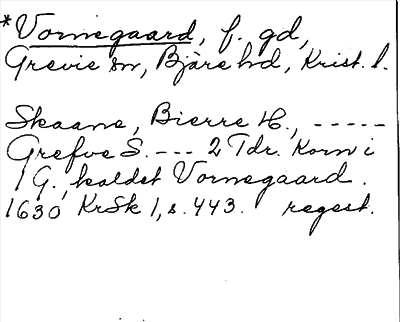 *Vornegaard, f. gd,
Grevie sn, Bjäre hd, Krist. l.
Skaane, Bierre H., -----
Grefve S. --- 2 Tdr. Korn i
1 G., kaldet Vornegaard.
1630 KrSk 1, s. 443. regest.